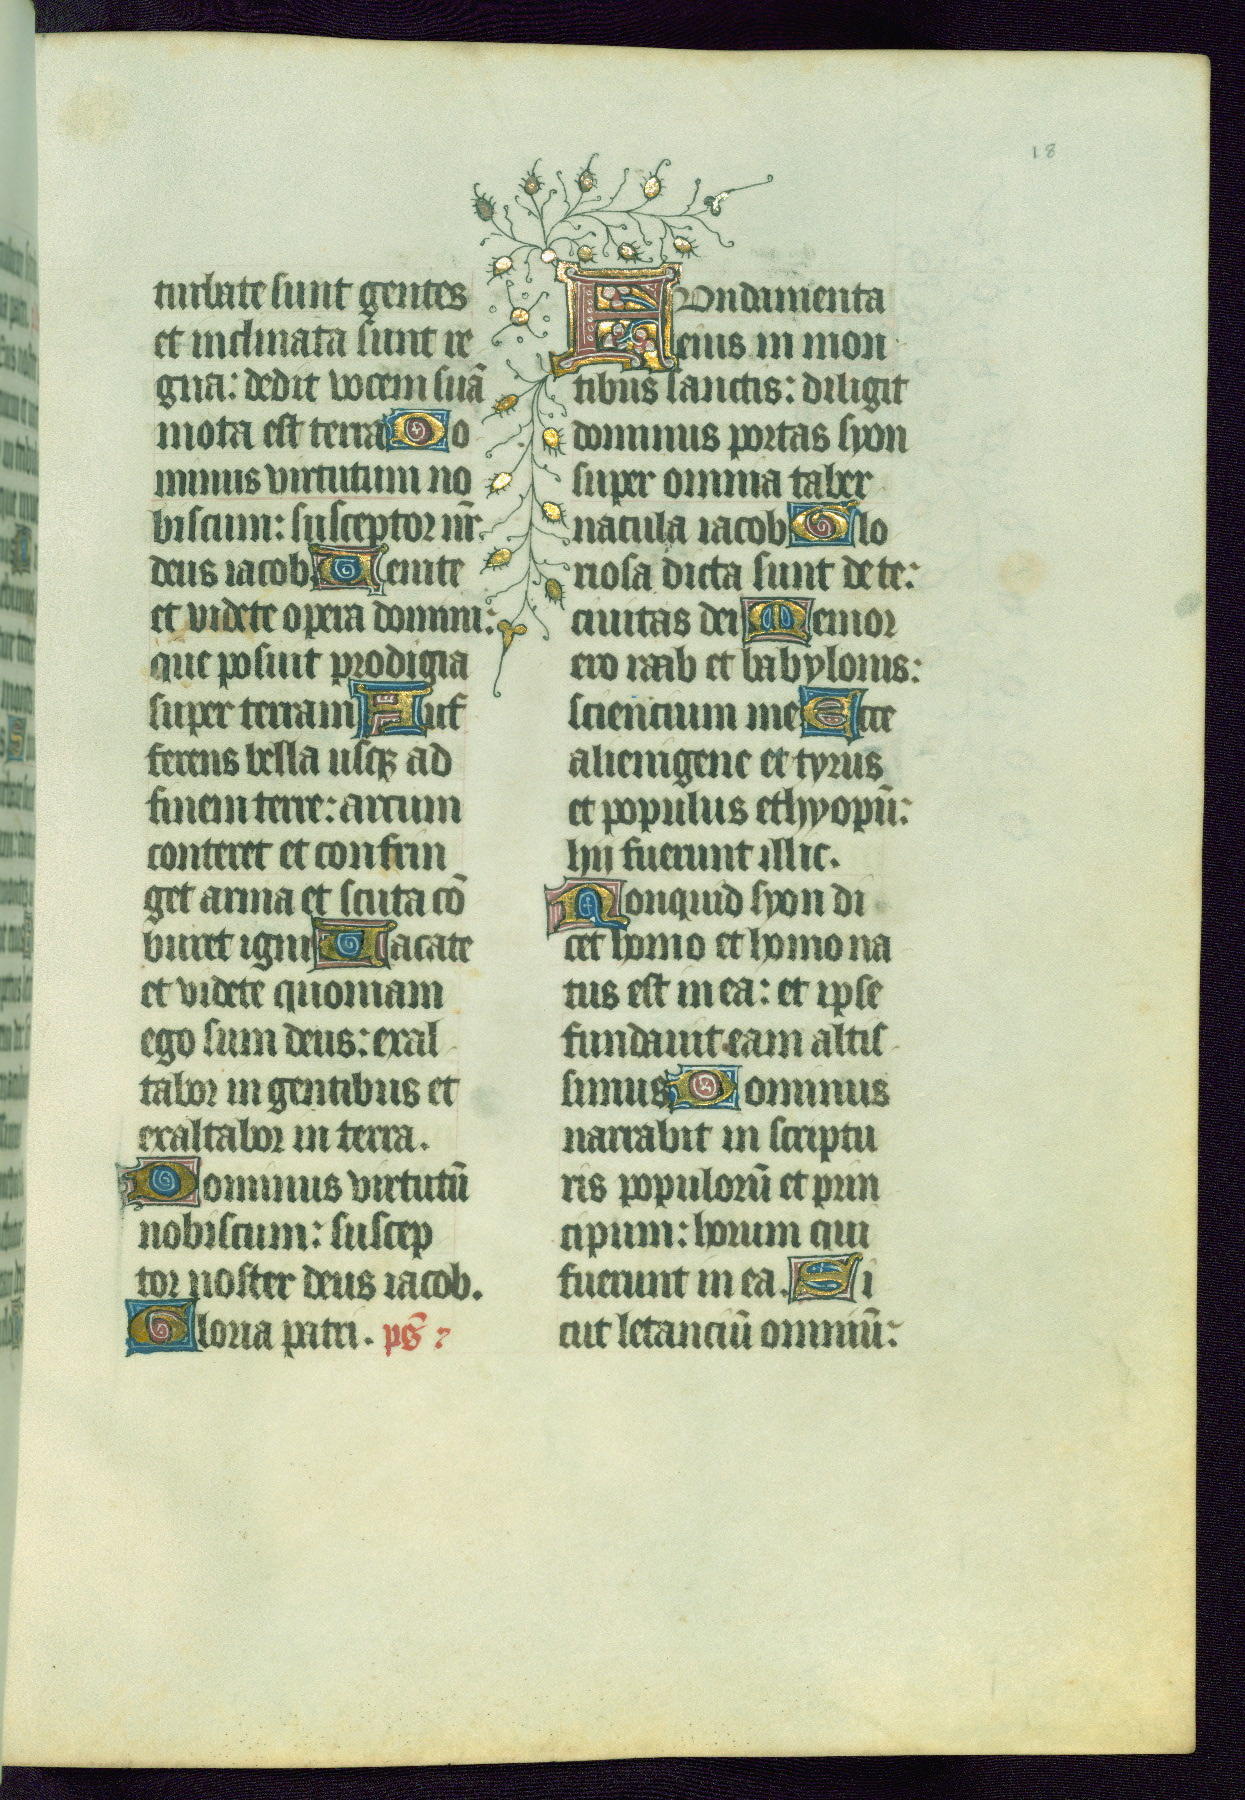 18
turbate sunt gentes
et inclinata sunt re
gna: dedit vocem suā
mota est terra Do
minus virtutum no
biscum: susceptor nr̄
deus iacob Venite
et videte opera domini:
que posuit prodigia
super terram Auf
ferens bella usqꝫ ad
finem terre: arcum
conteret et confrin
get arma et scuta cō
buret igni Vacate
et videte quoniam
ego sum deus: exal
tabor in gentibus et
exaltabor in terra.
Dominus virtutū
nobiscum: suscep
tor noster deus iacob.
Gloria patri. ps̄
Fundamenta
eius in mon
tibus sanctis: diligit
dominus portas syon
super omnia taber
nacula iacob Glo
riosa dicta sunt de te:
ciuitas dei Memor
ero raab et babylonis:
sciencium me Ecce
alienigene et tyrus
et populus ethyopū:
hij fuerunt illic.
Nonquid syon di
cet homo et homo na
tus est in ea: et ipse
fundauit eam altis
simus Dominus
narrabit in scriptu
ris populorū et prin
cipum: horum qui
fuerunt in ea. Si
cut letanciū omniū: